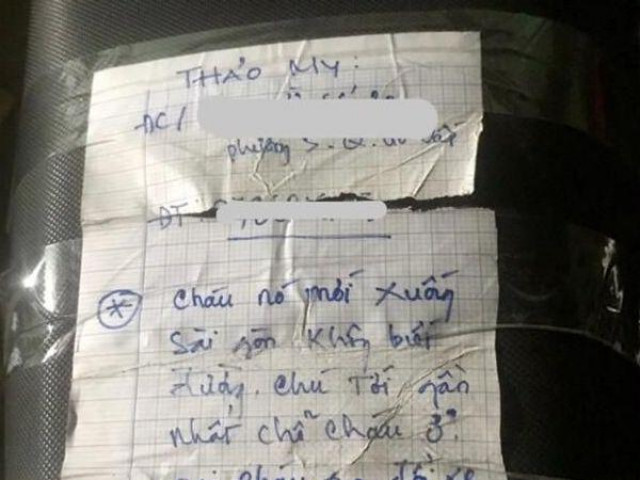 THẢO MY:
ĐC/
phường 3. Q. Gò Vấp
ĐT:
* Cháu nó mới xuống
Sài gòn không biết
đường. Chú Tới gần
nhất chỗ cháu ở.